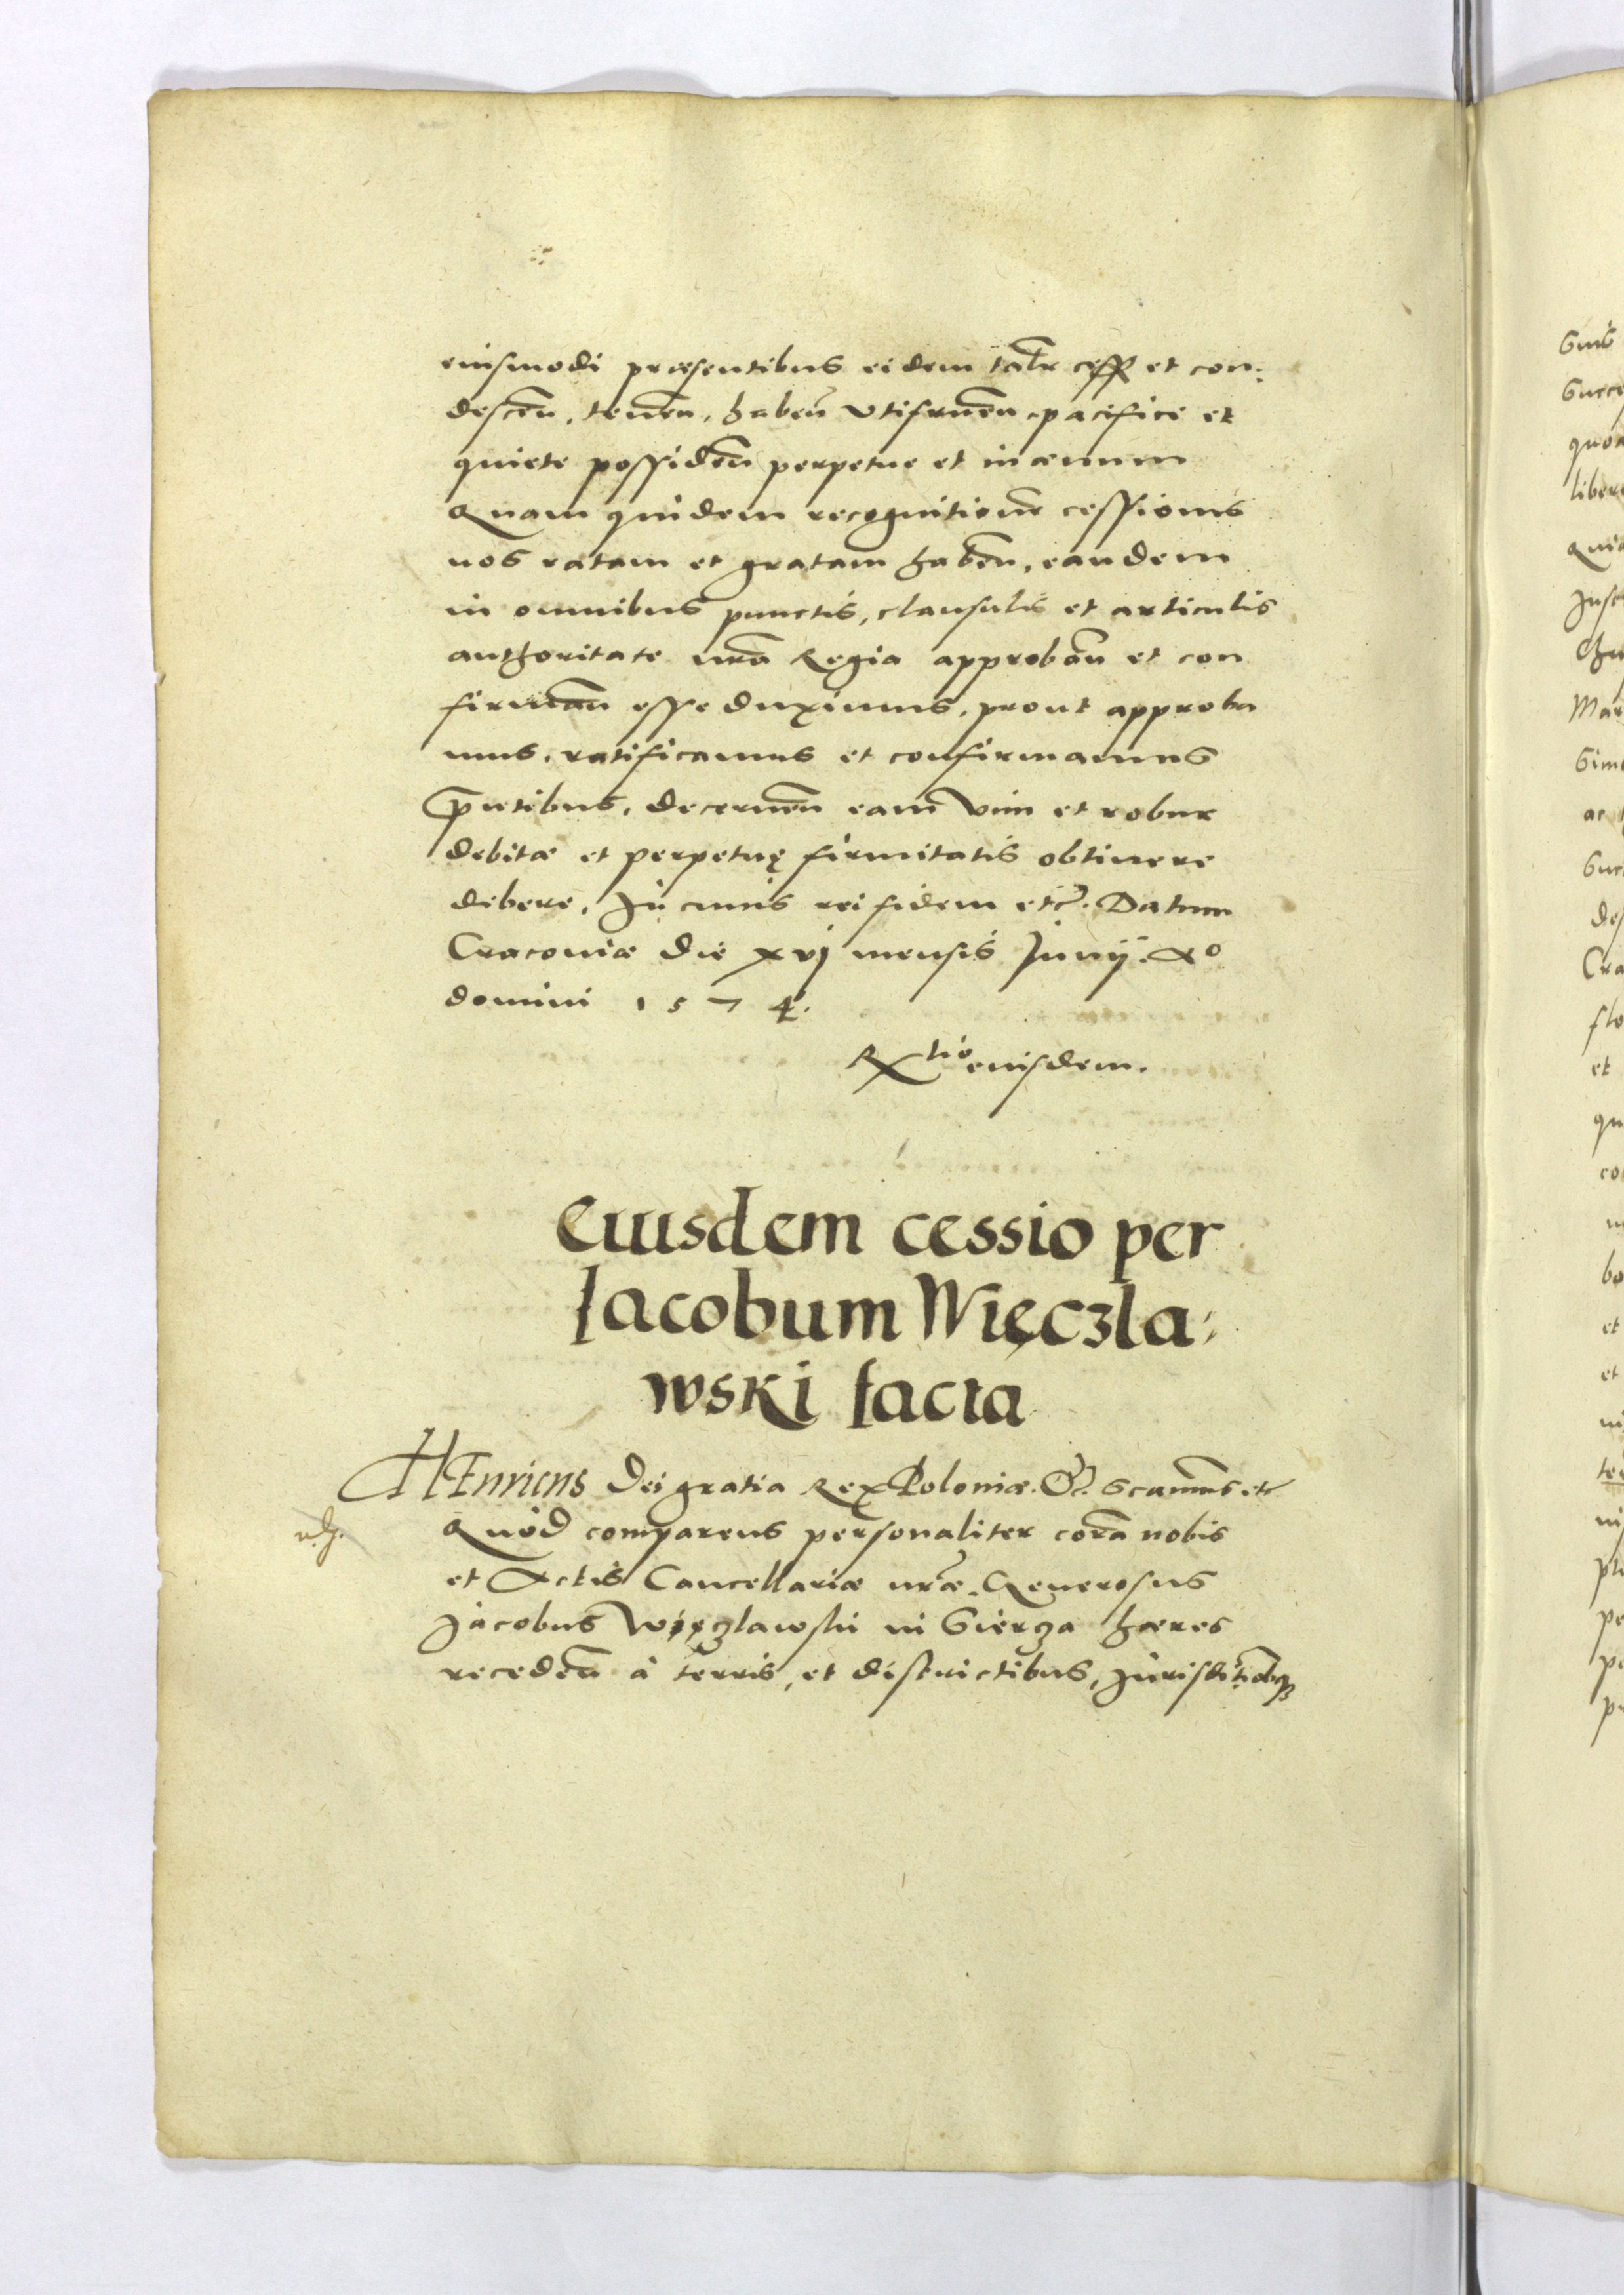 eiusmodi præsentibus eidem talr cess et con:
descen̄, tenen̄, haben̄ vtifruen̄ pacifice et
quiete possiden̄ perpetue et in æuum
Quam quidem recognitionē cessionis
nos ratam et gratam haben̄, eandem
in omnibus punctis, clausulis et articulis
authoritate nrā Regia approban̄ et con
firman̄ esse duximus, prout approba
mus, ratificamus et confirmamus
pn̄tibus, decernen̄ eam vim et robur
debitæ et perpetuę firmitatis obtinere
debere, In cuius rei fidem etc. Datum
Cracoviæ die xvj mensis Junij Ao
domini 1574.
Rtio eiusdem.
Eiusdem cessio per
Iacobum Więczla:
wski facta
HEnricus Dei gratia Rex Poloniæ &c. Scamus etc
Quòd comparens personaliter corā nobis
et Actis Cancellariæ nræ Generosus
Jacobus Więczlawski in Gierza hæres
receden̄ à terris, et districtibus, Jurisditiōibq3